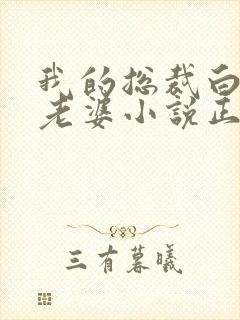 我的总裁白
老婆小説正
三有暮曦